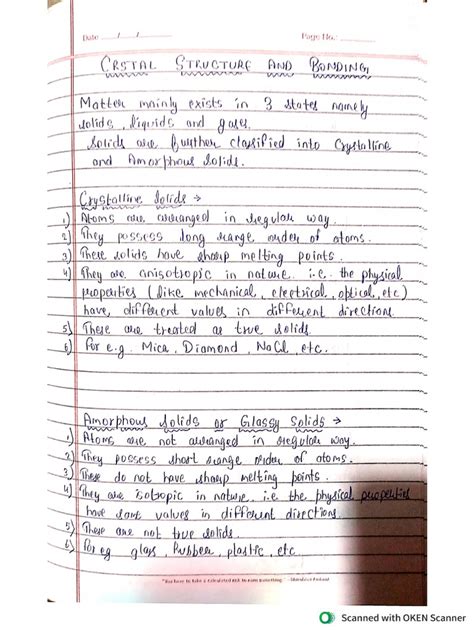 Date / /
Page No.:
CRSTAL STRUCTURE AND BONDING
Matter mainly exists in 3 states namely
solids, liquids and gases.
Solids are further classified into Crystalline
and Amorphous Solids.
Crystalline Solids →
1) Atoms are arranged in regular way.
2) They possess long range order of atoms.
3) These solids have sharp melting points.
4) They are anisotropic in nature i.e. the physical
properties (like mechanical, electrical, optical, etc)
have, different values in different directions.
5) These are treated as true solids.
6) For e.g. Mica, Diamond, NaCl, etc.
Amorphous Solids or Glassy Solids →
1) Atoms are not arranged in regular way.
2) They possess short range order of atoms.
3) These do not have sharp melting points.
4) They are isotropic in nature. i.e the physical properties
have same values in different directions.
5) These are not true solids.
6) For eg glass, Rubber, plastic, etc.
"You have to take a calculated risk to earn something."
Scanned with OKEN Scanner